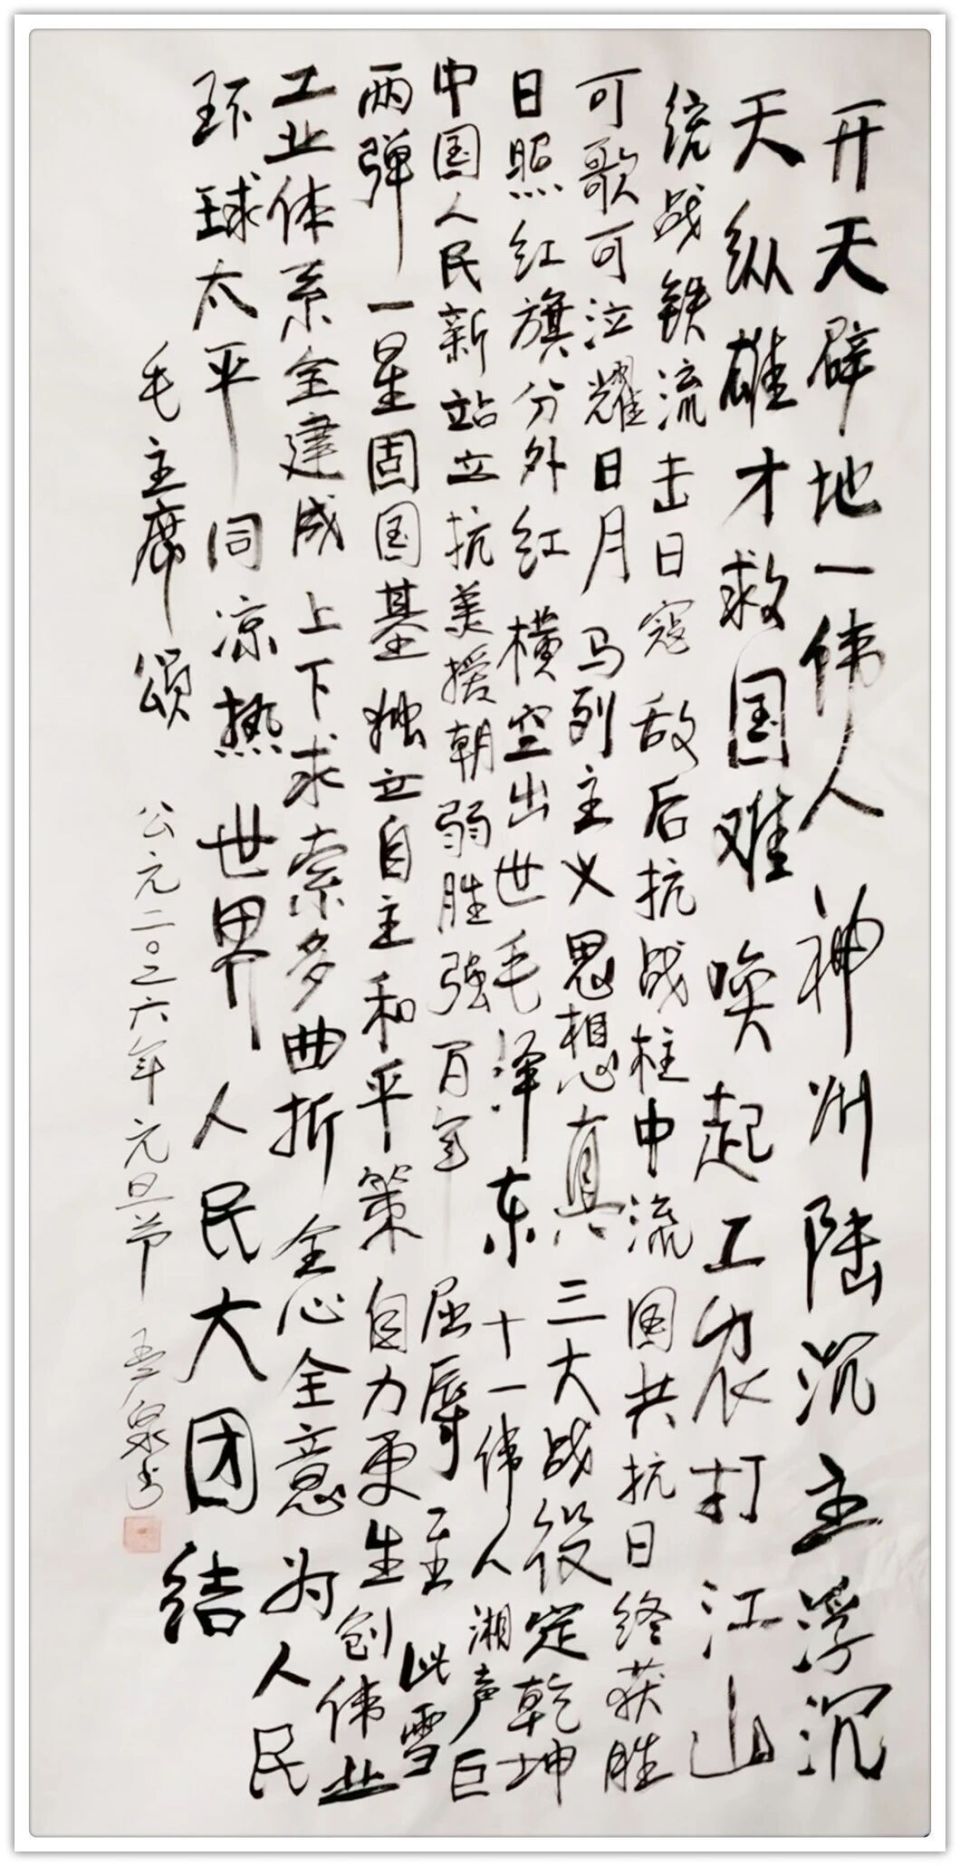 开天辟地一伟人 神州陆沉主浮沉
天纵雄才救国难 唤起工农打江山
统战铁流击日寇 敌后抗战柱中流 国共抗日终获胜
可歌可泣耀日月 马列主义思想真 三大战役定乾坤
日照红旗分外红 横空出世毛泽东 十一伟人湘声巨
中国人民新站立 抗美援朝弱胜强 百年屈辱至此雪
两弹一星固国基 独立自主和平策 自力更生创伟业
工业体系全建成 上下求索多曲折 全心全意为人民
环球太平同凉热 世界人民大团结
毛主席颂 公元二〇二六年元旦节